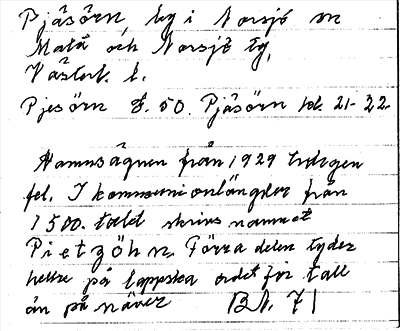 Pjäsörn, by i Norsjö sn
Malå och Norsjö tg,
Västerb. l.
Pjesörn J. 50. Pjäsörn td. 21-22.
Namnsägnen från 1929 troligen
fel. I kommunionlängder från
1500. talet skrivs namnet
Pietzöhn. Förra delen tyder
hellre på lappska ordet för tall
än på näver BN. 71